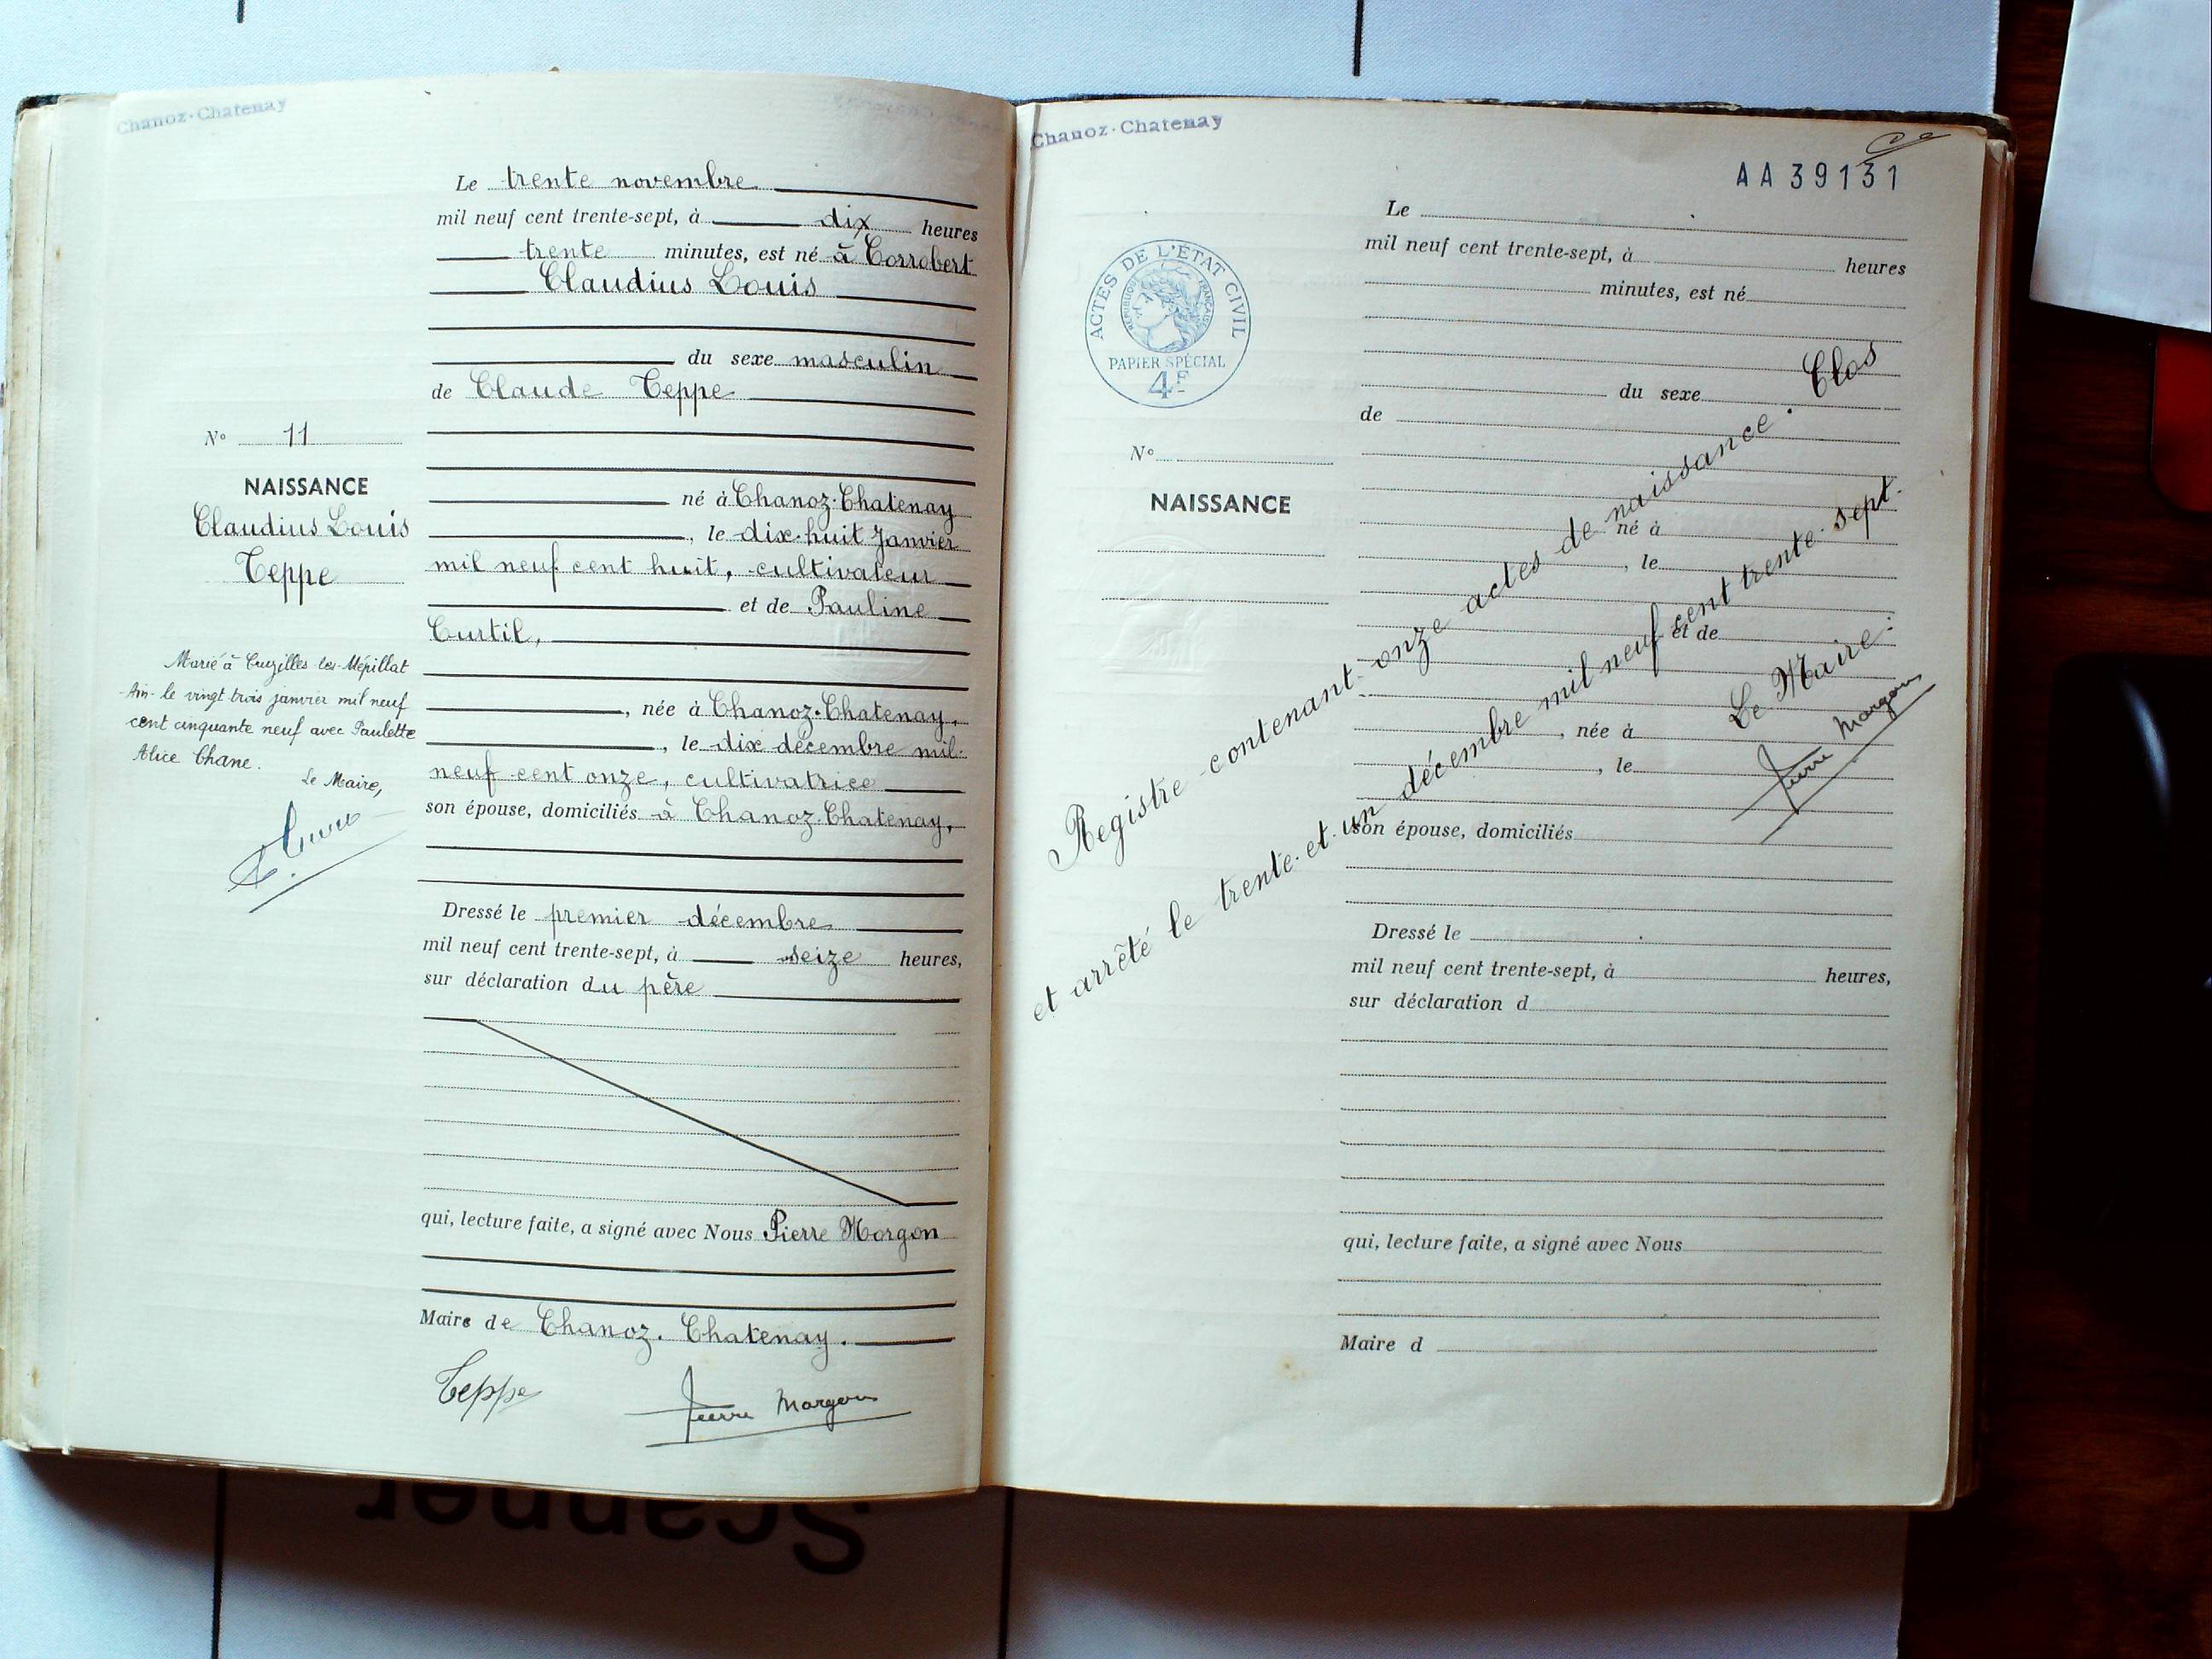 Chanoz-Chatenay
Le trente novembre
mil neuf cent trente-sept, à dix heures
trente minutes, est né à Corrobert
Claudius Louis
du sexe masculin
de Claude Teppe
né à Chanoz-Chatenay
, le dix-huit Janvier
mil neuf cent huit, cultivateur
et de Pauline
Curtil,
, née à Chanoz-Chatenay,
, le dix décembre mil
neuf cent onze, cultivatrice
son épouse, domiciliés à Chanoz-Chatenay,
Dressé le premier décembre
mil neuf cent trente-sept, à seize heures,
sur déclaration du père
qui, lecture faite, a signé avec Nous Pierre Morgon
Maire de Chanoz-Chatenay.
Teppe
Pierre Morgon
N° 11
NAISSANCE
Claudius Louis
Teppe
Marié à Cruzilles-les-Mépillat
-Ain- le vingt trois janvier mil neuf
cent cinquante neuf avec Paulette
Alice Chane.
Le Maire,
Chanoz-Chatenay
AA39131
ACTES DE L'ÉTAT CIVIL
RÉPUBLIQUE FRANÇAISE
PAPIER SPÉCIAL
4F
N°
NAISSANCE
Le
mil neuf cent trente-sept, à heures
minutes, est né
du sexe
de
né à
, le
et de
, née à
, le
son épouse, domiciliés
Dressé le
mil neuf cent trente-sept, à heures,
sur déclaration d
qui, lecture faite, a signé avec Nous
Maire d
Registre contenant onze actes de naissance. Clos
et arrêté le trente-et-un décembre mil neuf cent trente-sept.
Le Maire:
Pierre Morgon
Scanner